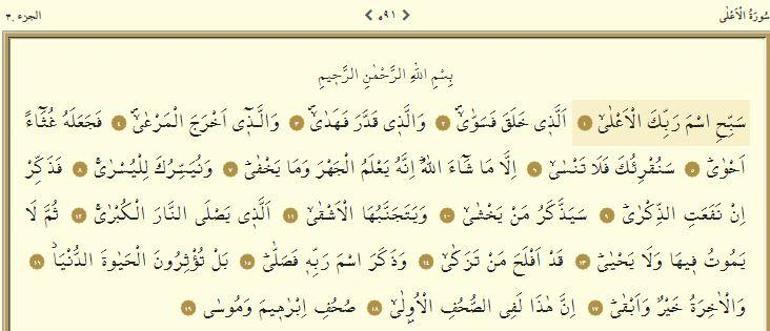 سُورَةُ الْاَعْلٰى ٥٩١ الجزء ٣٠
بِسْمِ اللهِ الرَّحْمٰنِ الرَّح۪يمِ
سَبِّحِ اسْمَ رَبِّكَ الْاَعْلٰىۙ ١ اَلَّذ۪ي خَلَقَ فَسَوّٰىۙۖ ٢ وَالَّذ۪ي قَدَّرَ فَهَدٰىۙۖ ٣ وَالَّذ۪ٓي اَخْرَجَ الْمَرْعٰىۙۖ ٤ فَجَعَلَهُ غُثَٓاءً
اَحْوٰىۜ ٥ سَنُقْرِئُكَ فَلَا تَنْسٰىۙ ٦ اِلَّا مَا شَٓاءَ اللهُۜ اِنَّهُ يَعْلَمُ الْجَهْرَ وَمَا يَخْفٰىۜ ٧ وَنُيَسِّرُكَ لِلْيُسْرٰىۚ ٨ فَذَكِّرْ
اِنْ نَفَعَتِ الذِّكْرٰىۜ ٩ سَيَذَّكَّرُ مَنْ يَخْشٰىۙ ١٠ وَيَتَجَنَّبُهَا الْاَشْقٰىۙ ١١ اَلَّذ۪ي يَصْلَى النَّارَ الْكُبْرٰىۚ ١٢ ثُمَّ لَا
يَمُوتُ ف۪يهَا وَلَا يَحْيٰىۜ ١٣ قَدْ اَفْلَحَ مَنْ تَزَكّٰىۙ ١٤ وَذَكَرَ اسْمَ رَبِّه۪ فَصَلّٰىۜ ١٥ بَلْ تُؤْثِرُونَ الْحَيٰوةَ الدُّنْيَاۘ ١٦
وَالْاٰخِرَةُ خَيْرٌ وَاَبْقٰىۜ ١٧ اِنَّ هٰذَا لَفِي الصُّحُفِ الْاُو۫لٰىۙ ١٨ صُحُفِ اِبْرٰه۪يمَ وَمُوسٰى ١٩